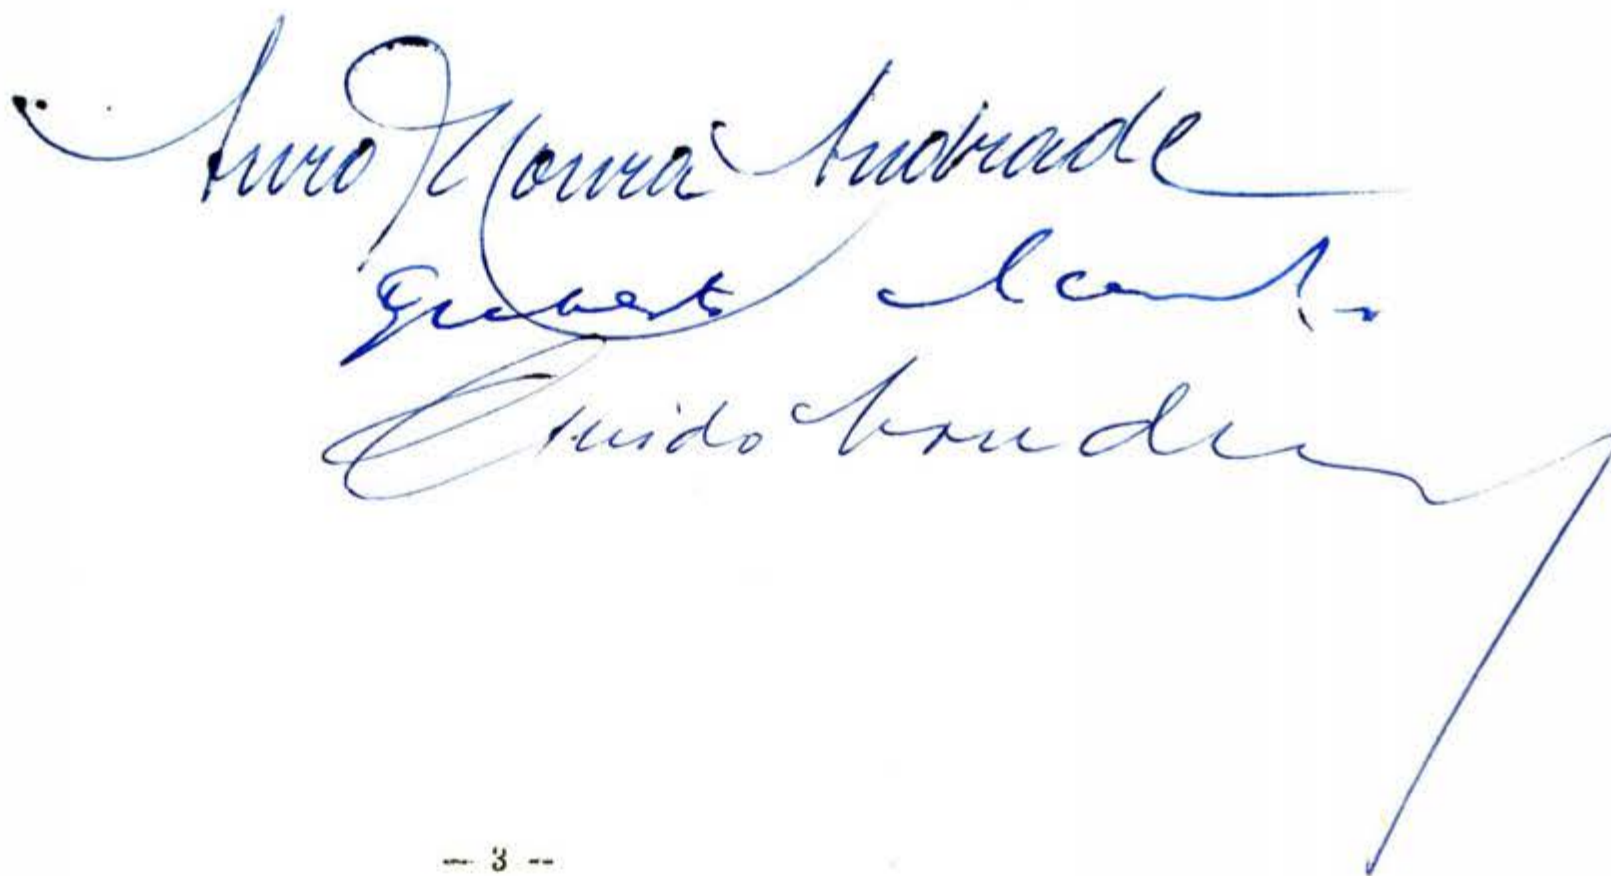 Auro Moura Andrade
Gilberto Marinho
Guido Mondin
— 3 --